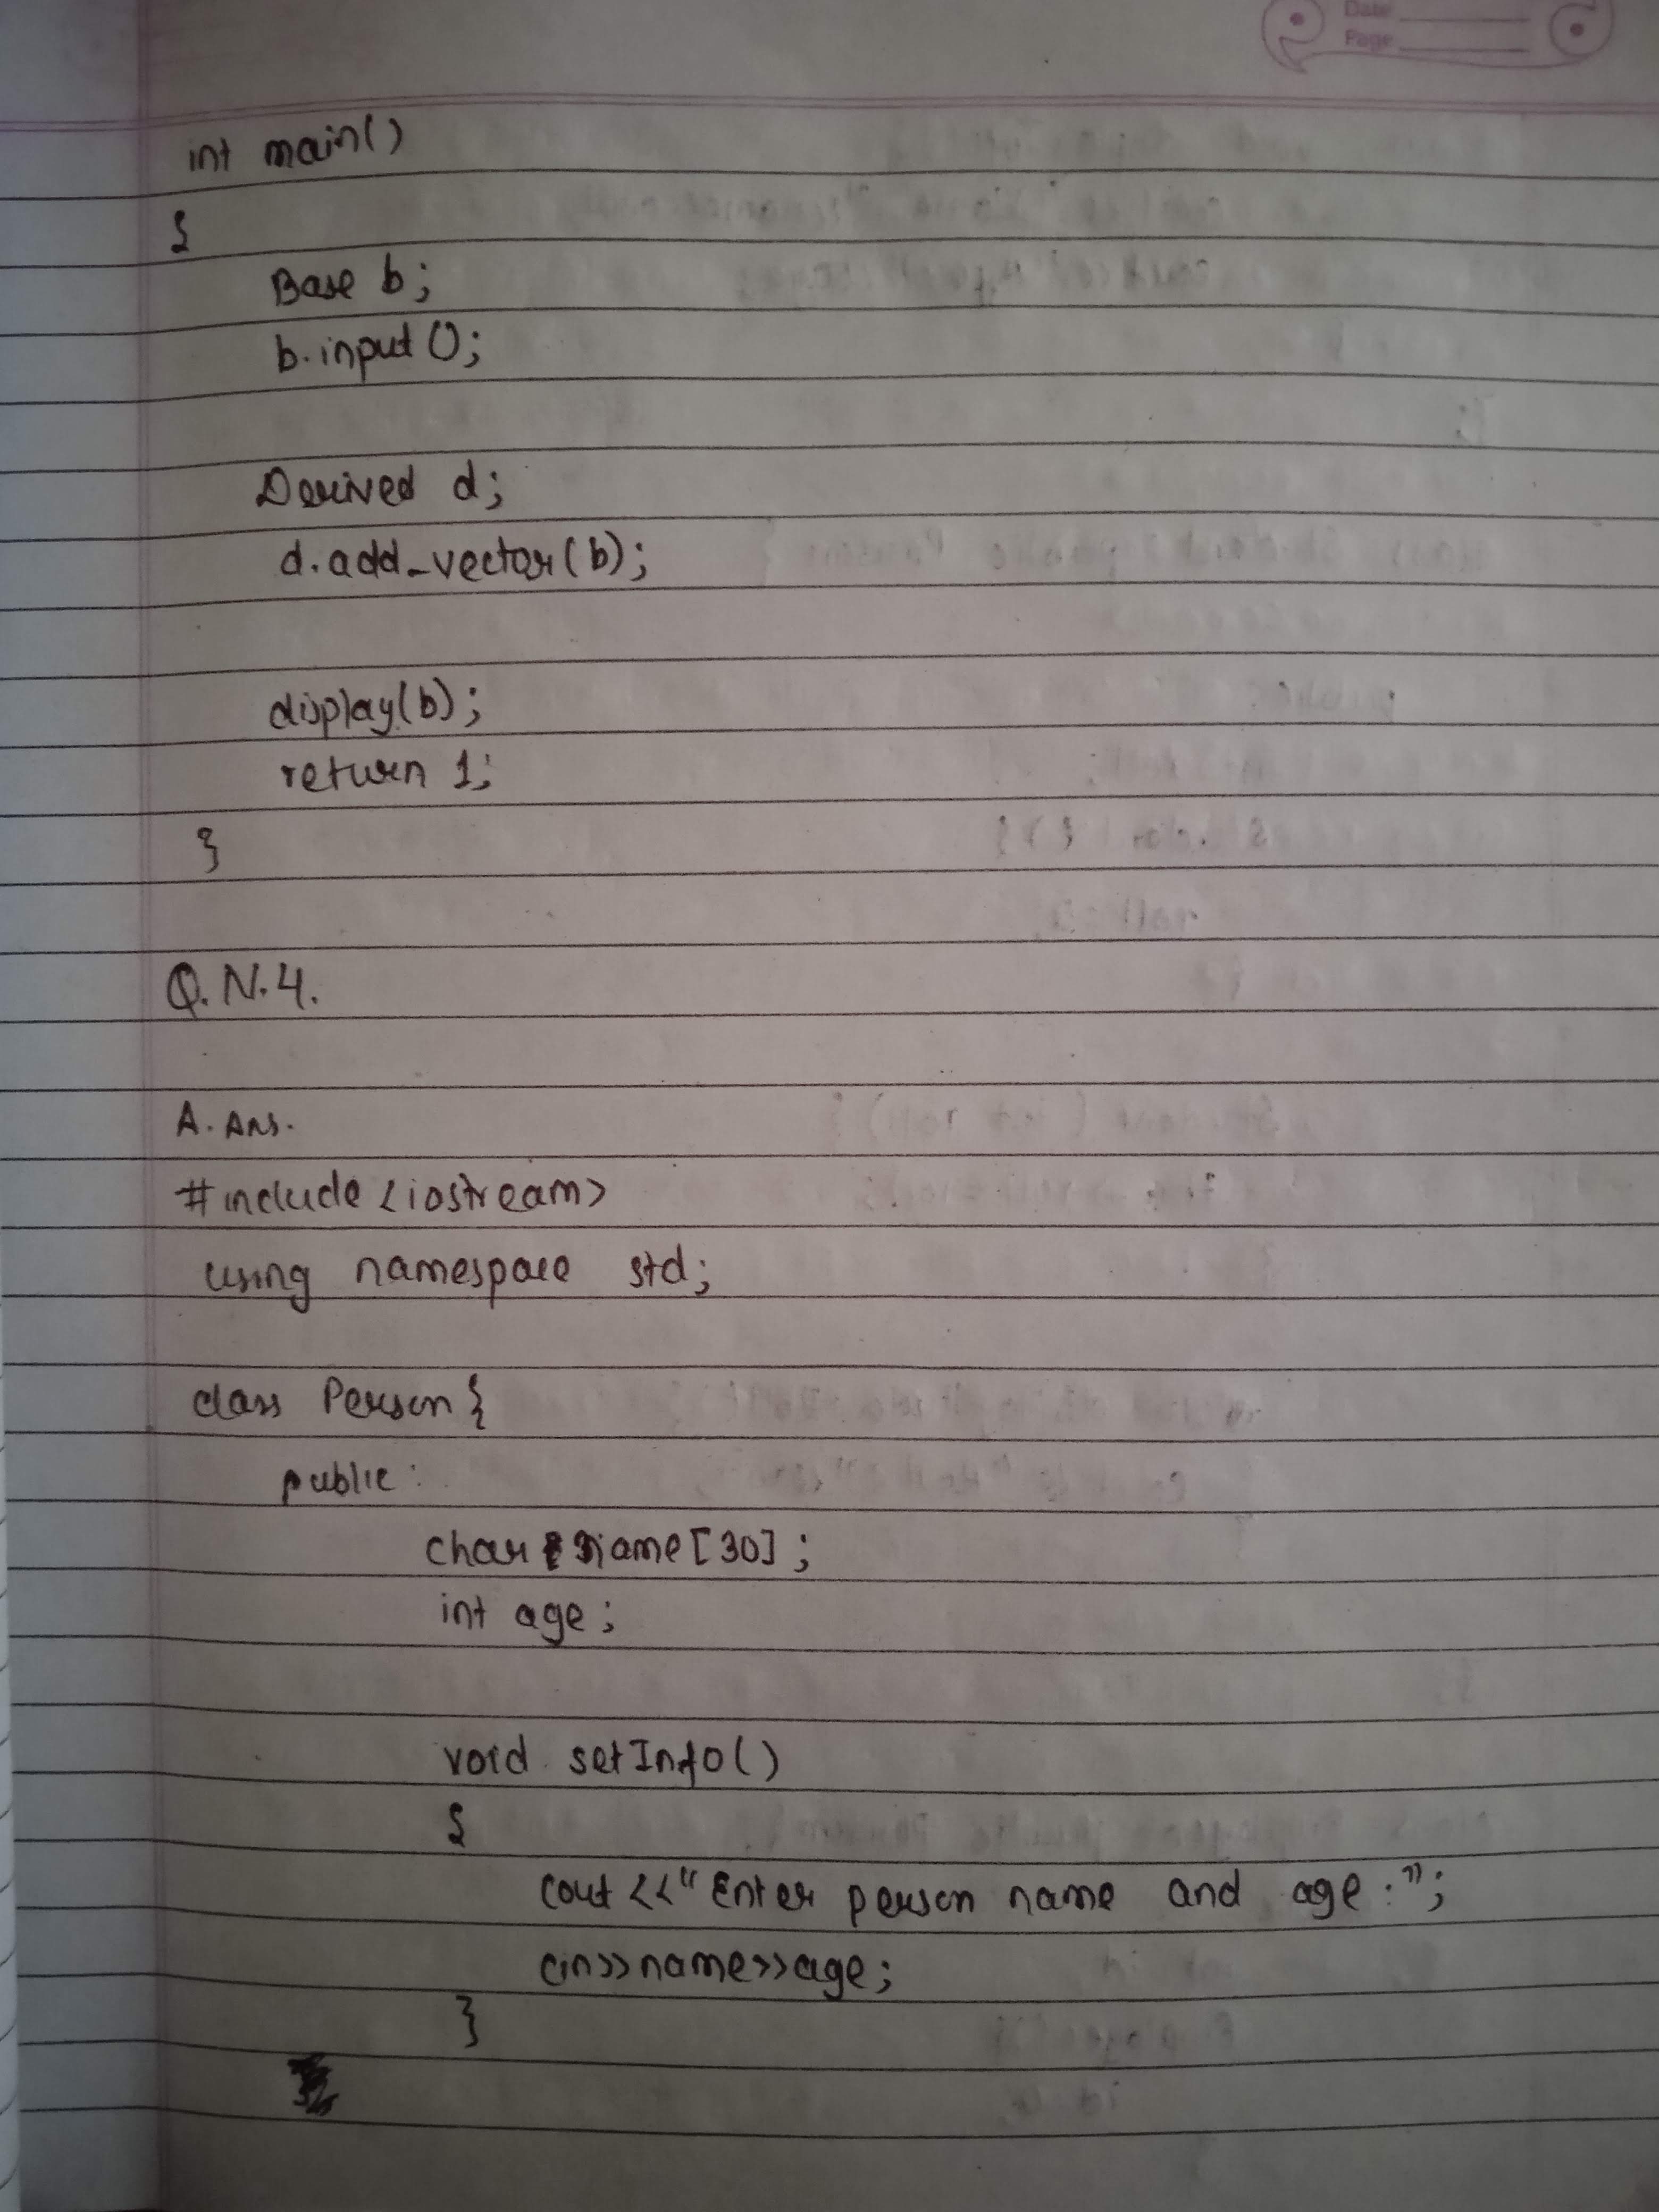 Date
Page
int main()
{
Base b;
b.input();
Derived d;
d.add_vector(b);
display(b);
return 1;
}
Q.N.4.
A. Ans.
#include <iostream>
using namespace std;
class Person{
public:
char name[30];
int age;
void setInfo()
{
cout<<"Enter person name and age:";
cin>>name>>age;
}